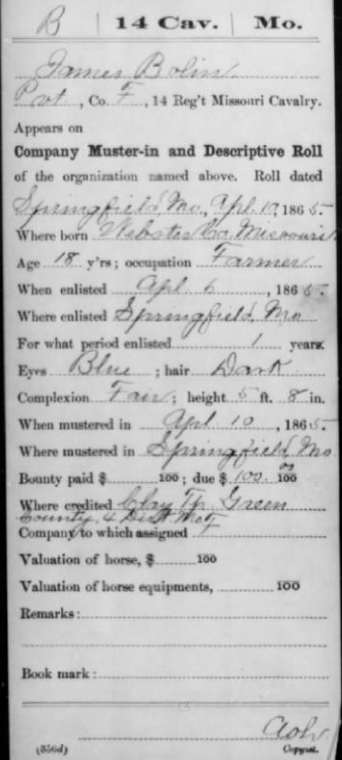 B | 14 Cav. | Mo.
James Bolin
Pvt, Co. F, 14 Reg't Missouri Cavalry.
Appears on
Company Muster-in and Descriptive Roll
of the organization named above. Roll dated
Springfield, Mo., Apl. 10, 1865.
Where born Webster Co Missouri
Age 18 y'rs; occupation Farmer
When enlisted Apl 6, 1865.
Where enlisted Springfield, Mo
For what period enlisted 1 years.
Eyes Blue; hair Dark
Complexion Fair; height 5 ft. 8 in.
When mustered in Apl 10, 1865.
Where mustered in Springfield, Mo
Bounty paid $ 100; due $ 100 00/100
Where credited Clay Tp. Green
County, 4 Dist Mo
Company to which assigned F
Valuation of horse, $ 100
Valuation of horse equipments, 100
Remarks:
Book mark:
(356d) Copyist.